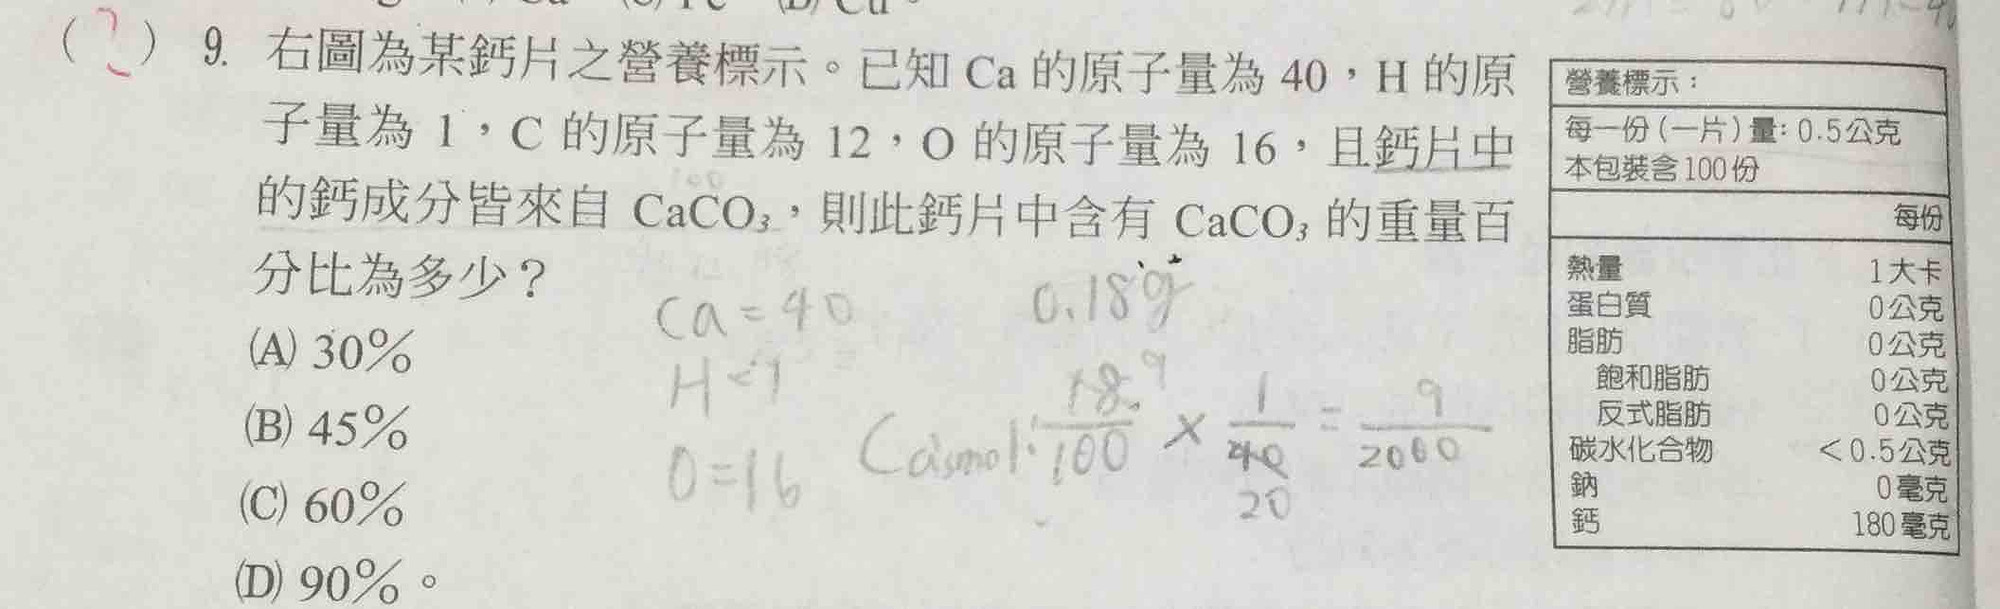 (?) 9. 右圖為某鈣片之營養標示。已知 Ca 的原子量為 40，H 的原
子量為 1，C 的原子量為 12，O 的原子量為 16，且鈣片中
100
的鈣成分皆來自 CaCO₃，則此鈣片中含有 CaCO₃ 的重量百
分比為多少？
(A) 30%
(B) 45%
(C) 60%
(D) 90%。
Ca=40
H=1
O=16
0.18g
Ca's mol: 18/100 9 × 1/40 20 = 9/2000
營養標示：
每一份(一片)量: 0.5公克
本包裝含100份
每份
熱量 1大卡
蛋白質 0公克
脂肪 0公克
飽和脂肪 0公克
反式脂肪 0公克
碳水化合物 <0.5公克
鈉 0毫克
鈣 180毫克